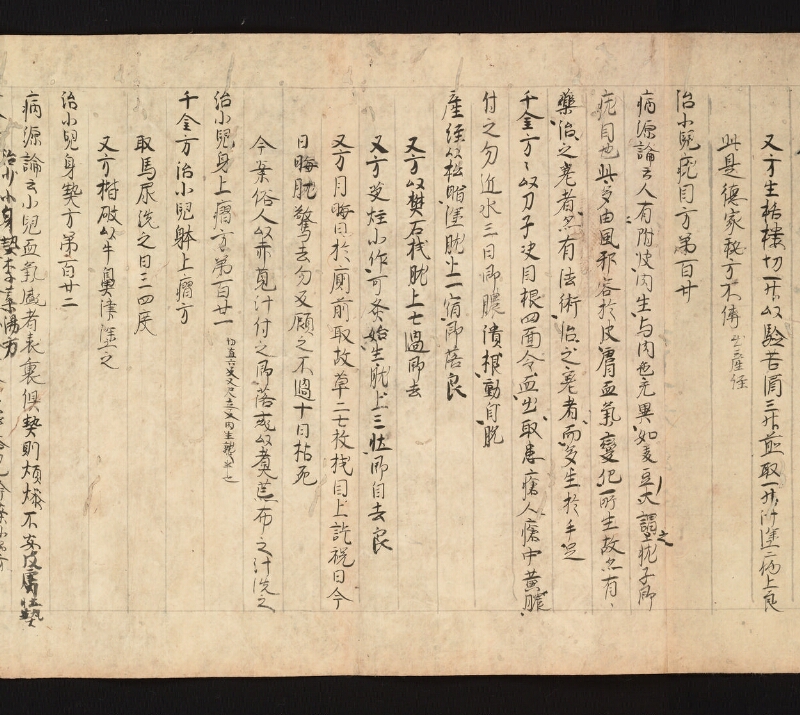 又方生栝樓切一升以驗苦酒三升煎取一升汁塗二傷上良
此是德家秘方不傳 出產經
治小兒疣目方第百廿
病源論云人有附皮肉生与肉也无異如麦豆大謂之疣子即
疣目也此多由風邪客於皮膚血氣變化所生故亦有
藥治之差者亦有法術治之差者而多生於手足
千金方云以刀子决目根四面令血出取患瘡人瘡中黄膿
付之勿近水三日即膿潰根動自脱
產經以松脂塗疣上一宿即落良
又方以樊石栈疣上七過即去
又方艾炷小作可灸始生疣上三壮即自去良
又方月晦日於厠前取故草二七枚栈目上訖祝曰今
日晦疣驚去勿反顧之不過十日枯死
今案俗人以赤莧汁付之即落或以煮蕉布之汁洗之
治小兒身上瘤方第百廿一
千金方治小兒躰上瘤方
取馬尿洗之日三四度
又方楷破以牛鼻津塗之
治小兒身熱方第百廿二
病源論云小兒血氣盛者表裏俱熱則煩燥不安皮膚壮熱